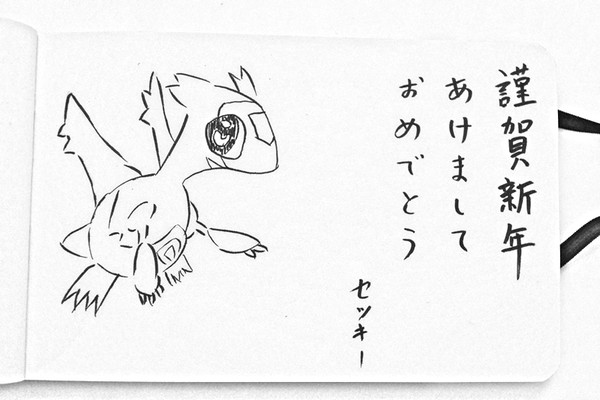 謹賀新年
あけまして
おめでとう
セツキー